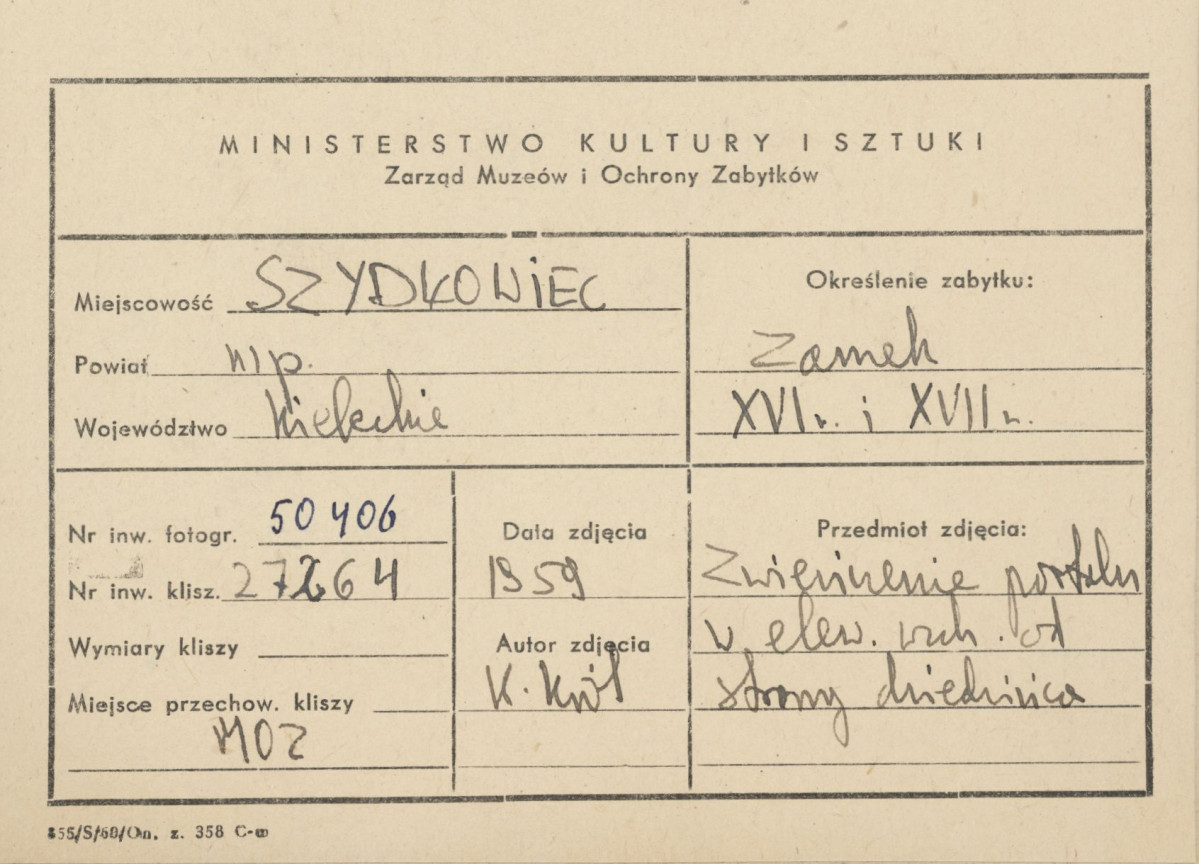 MINISTERSTWO KULTURY I SZTUKI
Zarząd Muzeów i Ochrony Zabytków
Miejscowość SZYDŁOWIEC
Powiat
Województwo Kieleckie
Określenie zabytku:
Zamek
XVI w. i XVII w.
Nr inw. fotogr. 50406
Nr inw. klisz. 27264
Wymiary kliszy
Miejsce przechow. kliszy
MOZ
Data zdjęcia
1959
Autor zdjęcia
K. Król
Przedmiot zdjęcia:
Zwieńczenie portalu
w elew. wsch. od
strony dziedzińca
z. 358